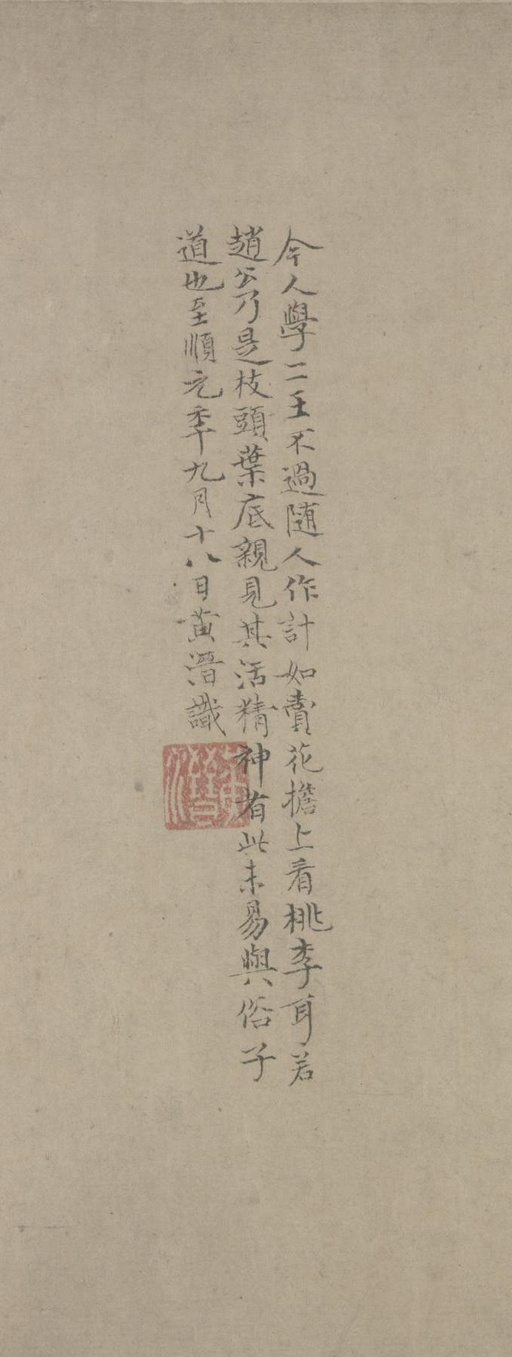 今人學二王不過隨人作計如賣花擔上看桃李耳若
趙公乃是枝頭葉底親見其活精神者此未易與俗子
道也至順元年九月十八日黃溍識
黃溍